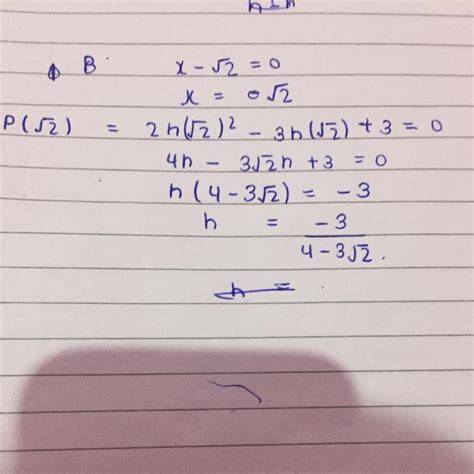 B. x - √2 = 0
x = √2
P(√2) = 2h(√2)² - 3h(√2) + 3 = 0
4h - 3√2h + 3 = 0
h(4 - 3√2) = -3
h = -3 / (4 - 3√2).
h =